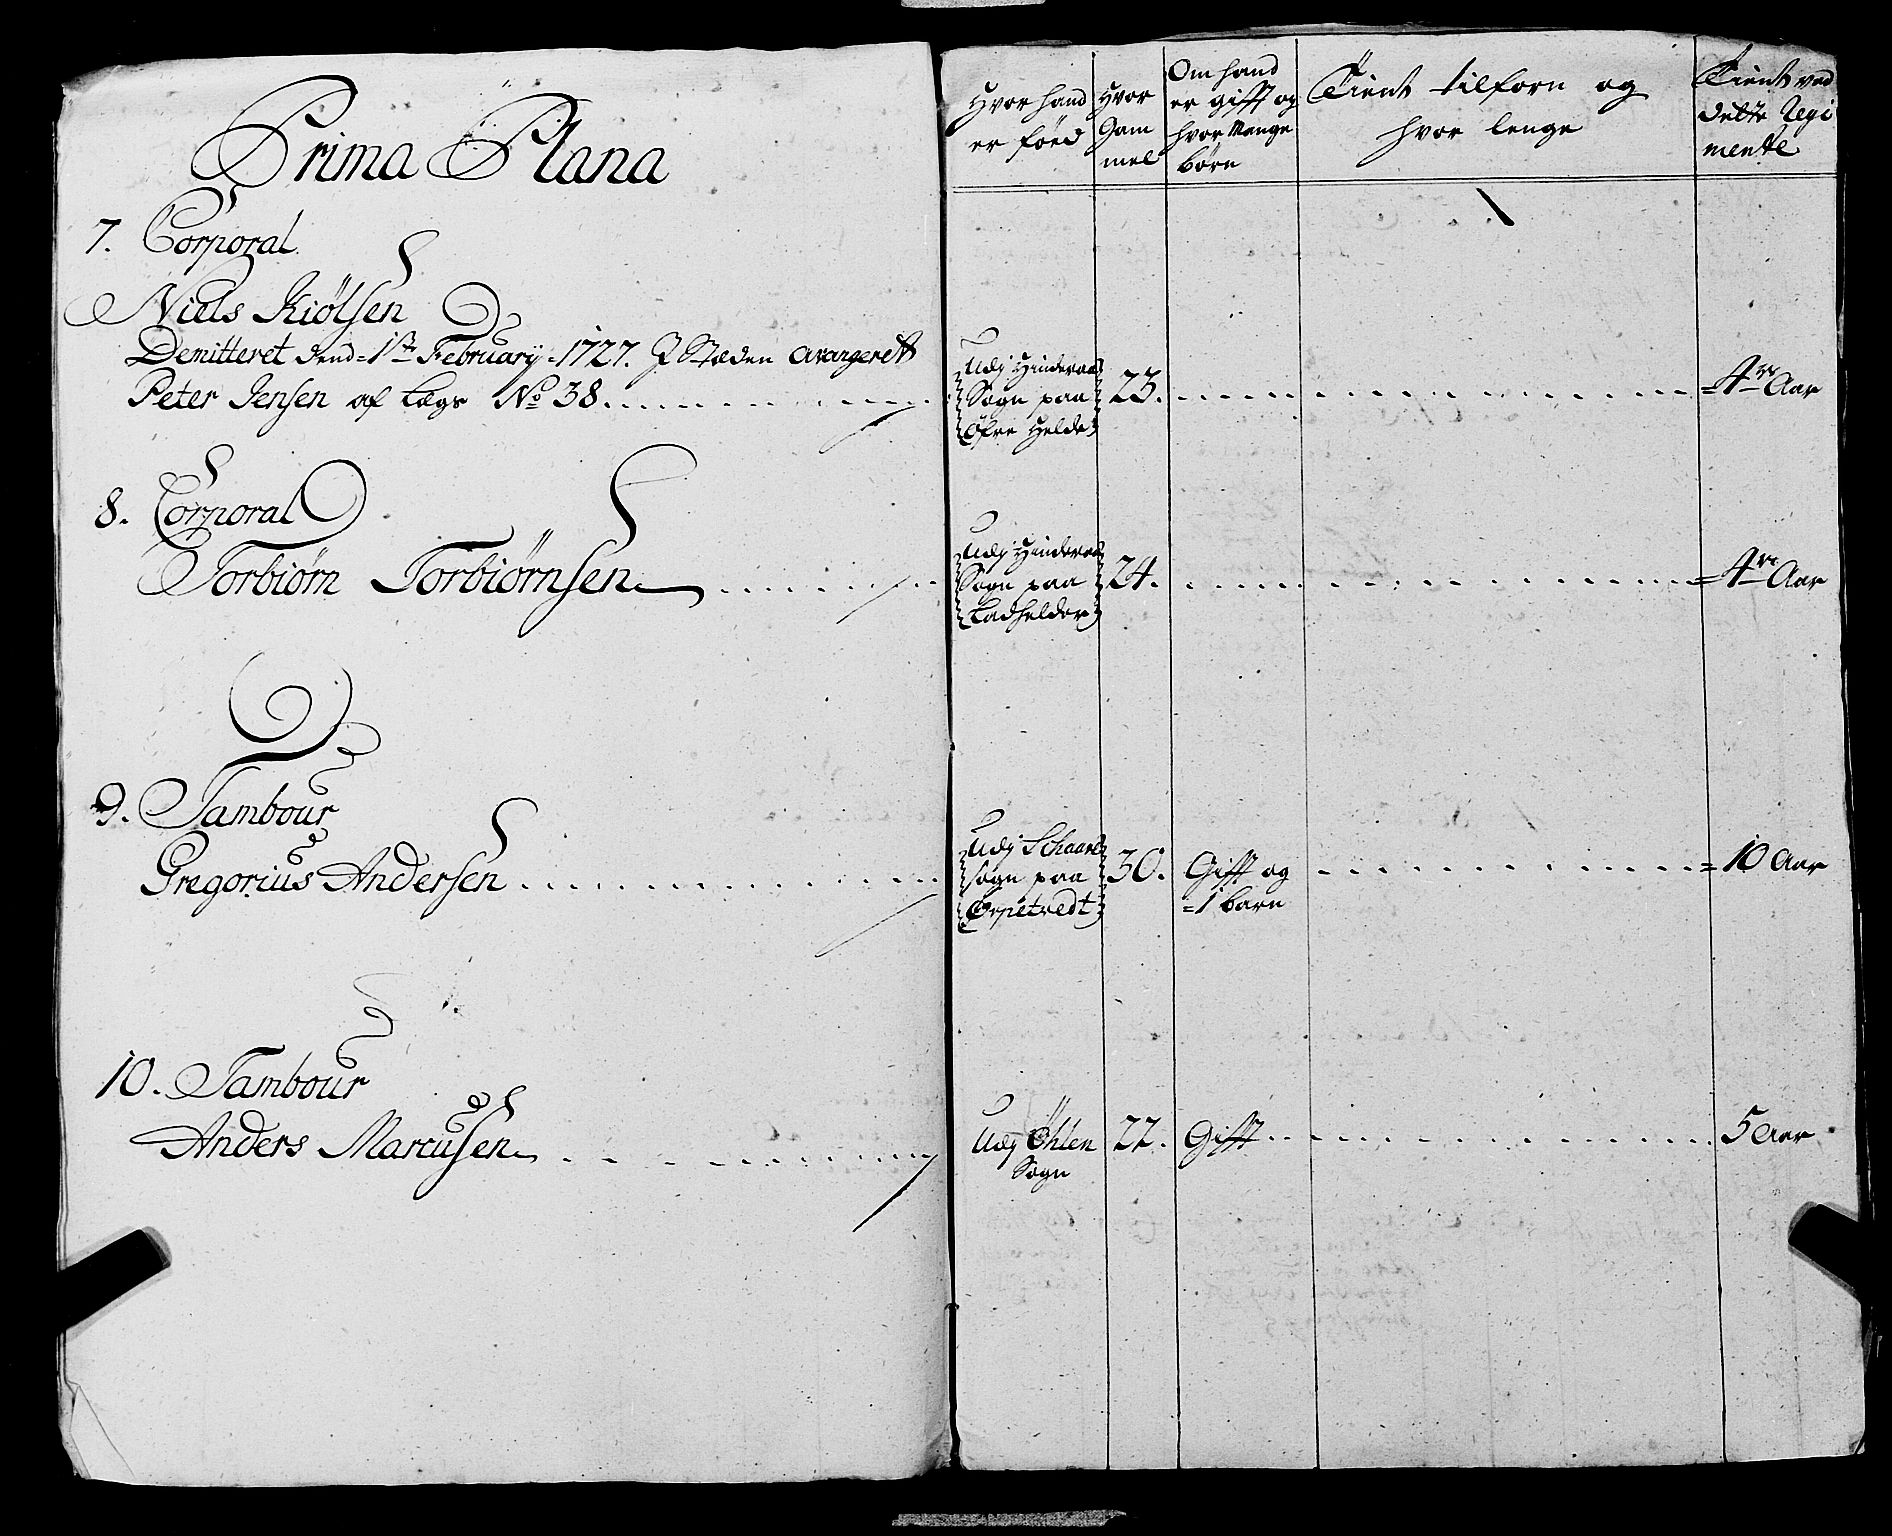 Prima Plana
7. Corporal
Niels Kiølsen
Demitteret dend = 1ste February = 1727. J Stæden avangeret
Peter Jensen af Lægs No 38
8. Corporal
Torbiørn Torbiørnsen
9. Tambour
Gregorius Andersen
10. Tambour
Anders Marcusen
Hvor hand
er føed
Hvor
Gam
mel
Om hand
er gifft og
hvor Mange
børn
Tient tilforn og
hvor lenge
Tient ved
dette Regi
mente
Udj Hinderaa
Sogn paa
Øfre Helde
23.
= 4re Aar
Udj Hinderaa
Sogn paa
Ladhelder
24.
= 4re Aar
Udj Schaare
sogn paa
30.
Gifft og
= 1 barn
= 10 Aar
Udj Øhlen
Sogn
22.
Gifft
5 Aar